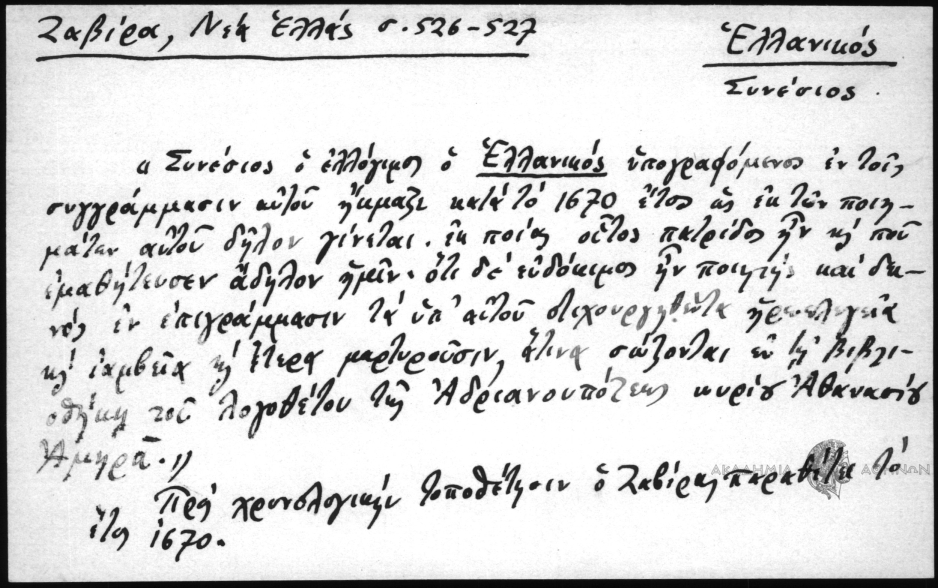 Ζαβίρα, Νέα Ἑλλάς σ. 526-527
Ἑλλανικός
Συνέσιος
« Συνέσιος ὁ ἐλλόγιμος ὁ Ἑλλανικός ὑπογραφόμενος ἐν τοῖς
συγγράμμασιν αὐτοῦ ἤκμαζε κατά τό 1670 ἔτος ὡς ἐκ τῶν ποιη-
μάτων αὐτοῦ δῆλον γίνεται. ἐκ ποίας οὗτος πατρίδος ἦν κ' ποῦ
ἐμαθήτευσεν ἄδηλον ἡμῖν· ὅτι δέ εὐδόκιμος ἦν ποιητής καί δει-
νός ἐν ἐπιγράμμασιν τά ὑπ' αὐτοῦ στιχουργηθέντα ἡρωελεγεῖα
κ' ἰαμβεῖα κ' ἕτερα μαρτυροῦσιν, ἅτινα σώζονται ἐν τῇ βιβλι-
οθήκῃ τοῦ λογοθέτου τῆς Ἀδριανουπόλεως κυρίου Ἀθανασίου
Ἀμηρᾶ. »
Πρός χρονολογικήν τοποθέτησιν ὁ Ζαβίρας παραθέτει τό
ἔτος 1670.
ΑΚΑΔΗΜΙΑ ΑΘΗΝΩΝ